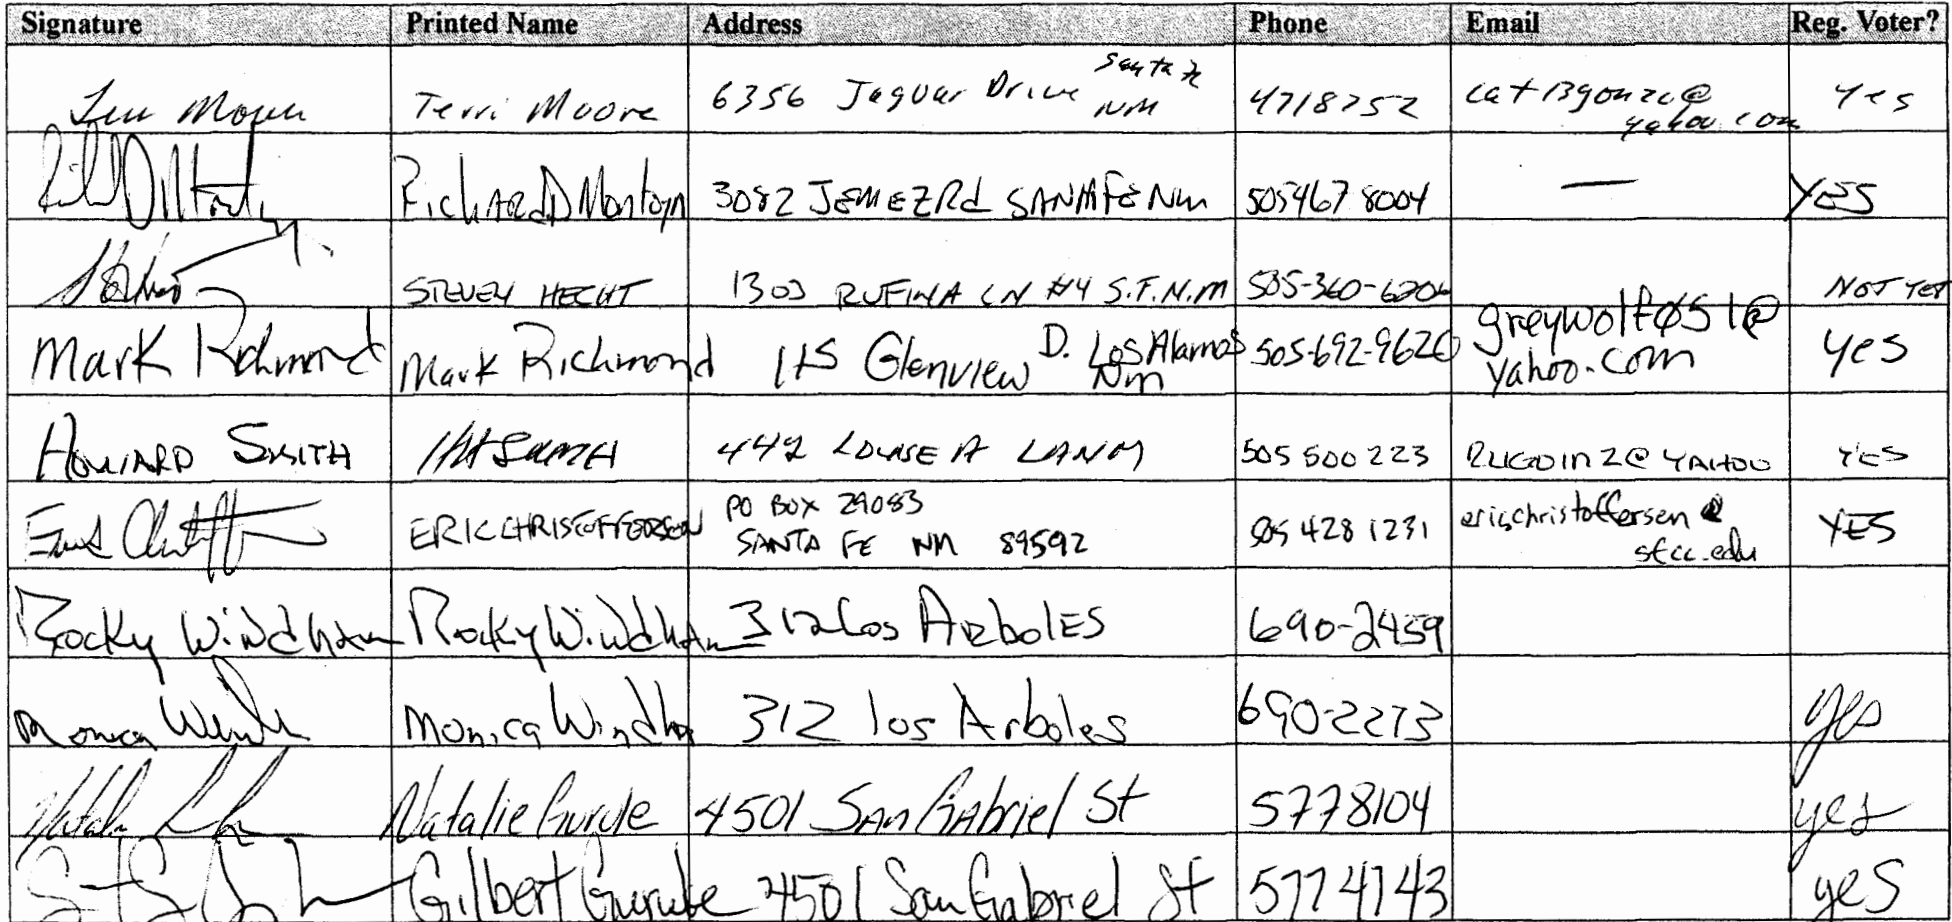 Signature Printed Name Address Phone Email Reg. Voter?
Terri Moore Terri Moore 6356 Jaguar Drive Santa Fe NM 4718752 cat13gonzo@yahoo.com Yes
Richard D Montoya 3082 JEMEZ Rd SANTA FE NM 505 467 8004 — YES
STEVEN HECHT 1303 RUFINA LN #4 S.F.N.M 505-360-6206 NOT YET
Mark Richmond Mark Richmond Glenview D. Los Alamos Nm 505-692-9620 greywolf051@yahoo.com yes
HOWARD SMITH 442 LOUISE A LANM 505 500 223 @YAHOO YES
ERIC CHRISTOFFERSEN PO BOX 29083 SANTA FE NM 89592 505 428 1231 ericchristoffersen@sfcc.edu YES
Rocky Windham Rocky Windham 312 Los ArboLES 690-2459
Monica Monica Windha 312 los Arboles 690-2273 yes
Natalie Gurule 4501 SAn GAbriel St 5778104 yes
Gilbert Gurule 4501 San Gabriel St 5774743 yes